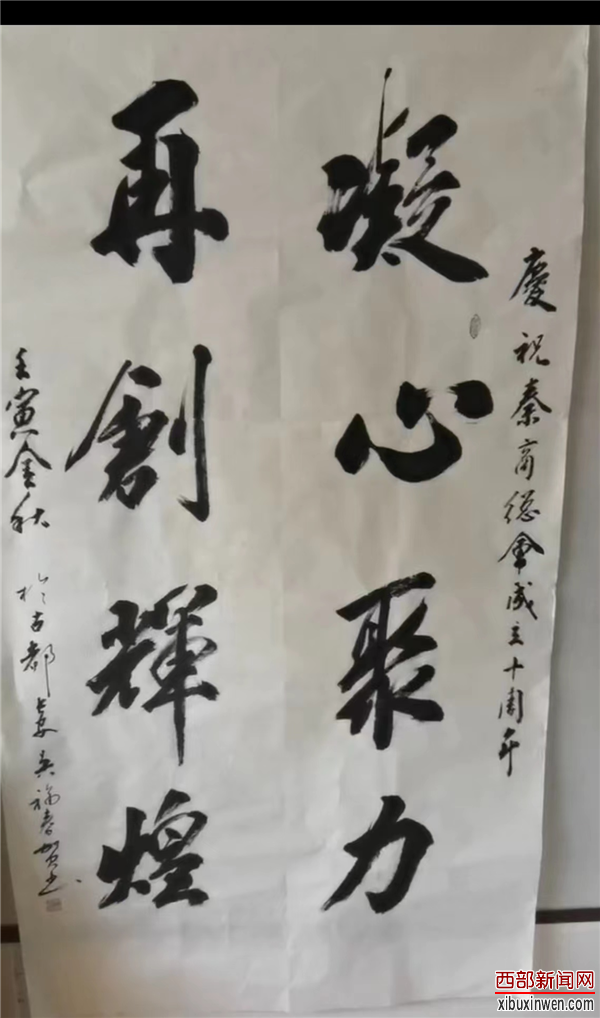 慶祝秦商總會成立十周年
凝心聚力
再創輝煌
壬寅金秋 於古都長安吴福春賀书
西部新闻网
xibuxinwen.com